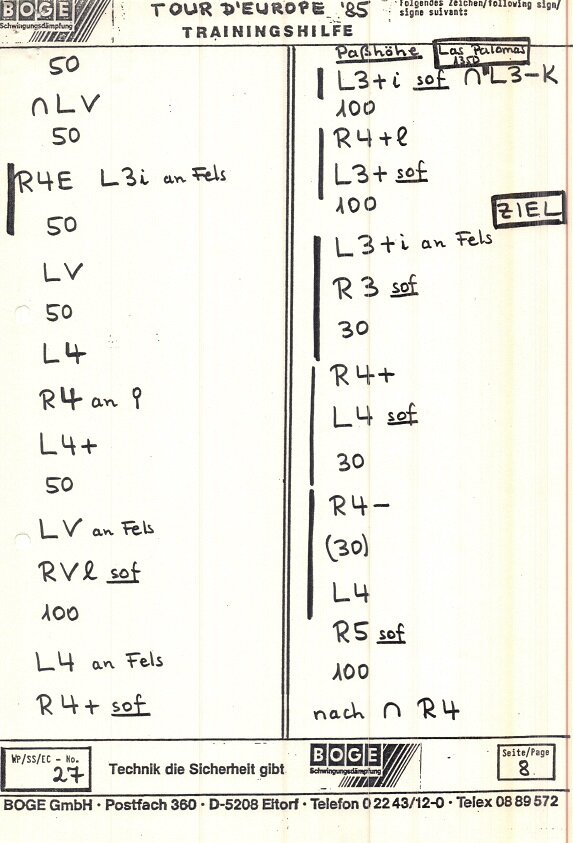 BOGE
Schwingungsdämpfung
TOUR D'EUROPE '85
TRAININGSHILFE
folgendes Zeichen/following sign/
signe suivant:
50
∩ LV
50
R4E L3i an Fels
50
LV
50
L4
R4 an
L4+
50
LV an Fels
RVl sof
100
L4 an Fels
R4+ sof
Paßhöhe Las Palomas
1350
L3+i sof ∩ L3-K
100
R4+l
L3+ sof
100
ZIEL
L3+i an Fels
R3 sof
30
R4+
L4 sof
30
R4-
(30)
L4
R5 sof
100
nach ∩ R4
WP/SS/EC - No.
27
Technik die Sicherheit gibt
BOGE
Schwingungsdämpfung
Seite/Page
8
BOGE GmbH · Postfach 360 · D-5208 Eitorf · Telefon 0 22 43/12-0 · Telex 08 89 572